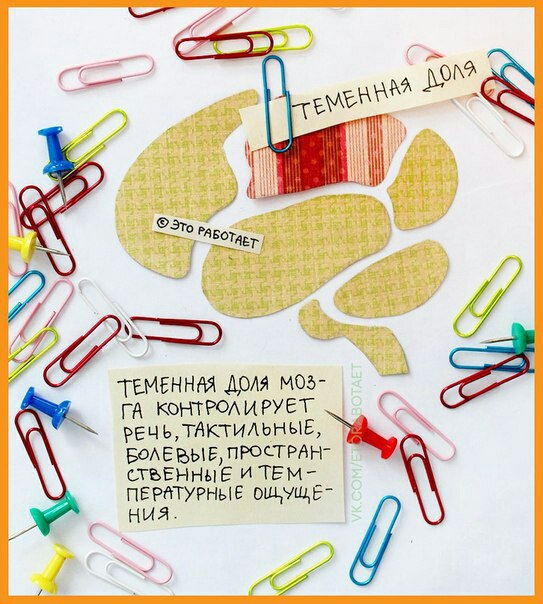 ТЕМЕННАЯ ДОЛЯ
© ЭТО РАБОТАЕТ
ТЕМЕННАЯ ДОЛЯ МОЗ-
ГА КОНТРОЛИРУЕТ
РЕЧЬ, ТАКТИЛЬНЫЕ,
БОЛЕВЫЕ, ПРОСТРАН-
СТВЕННЫЕ И ТЕМ-
ПЕРАТУРНЫЕ ОЩУЩЕ-
НИЯ.
VK.COM/ETORABOTAET